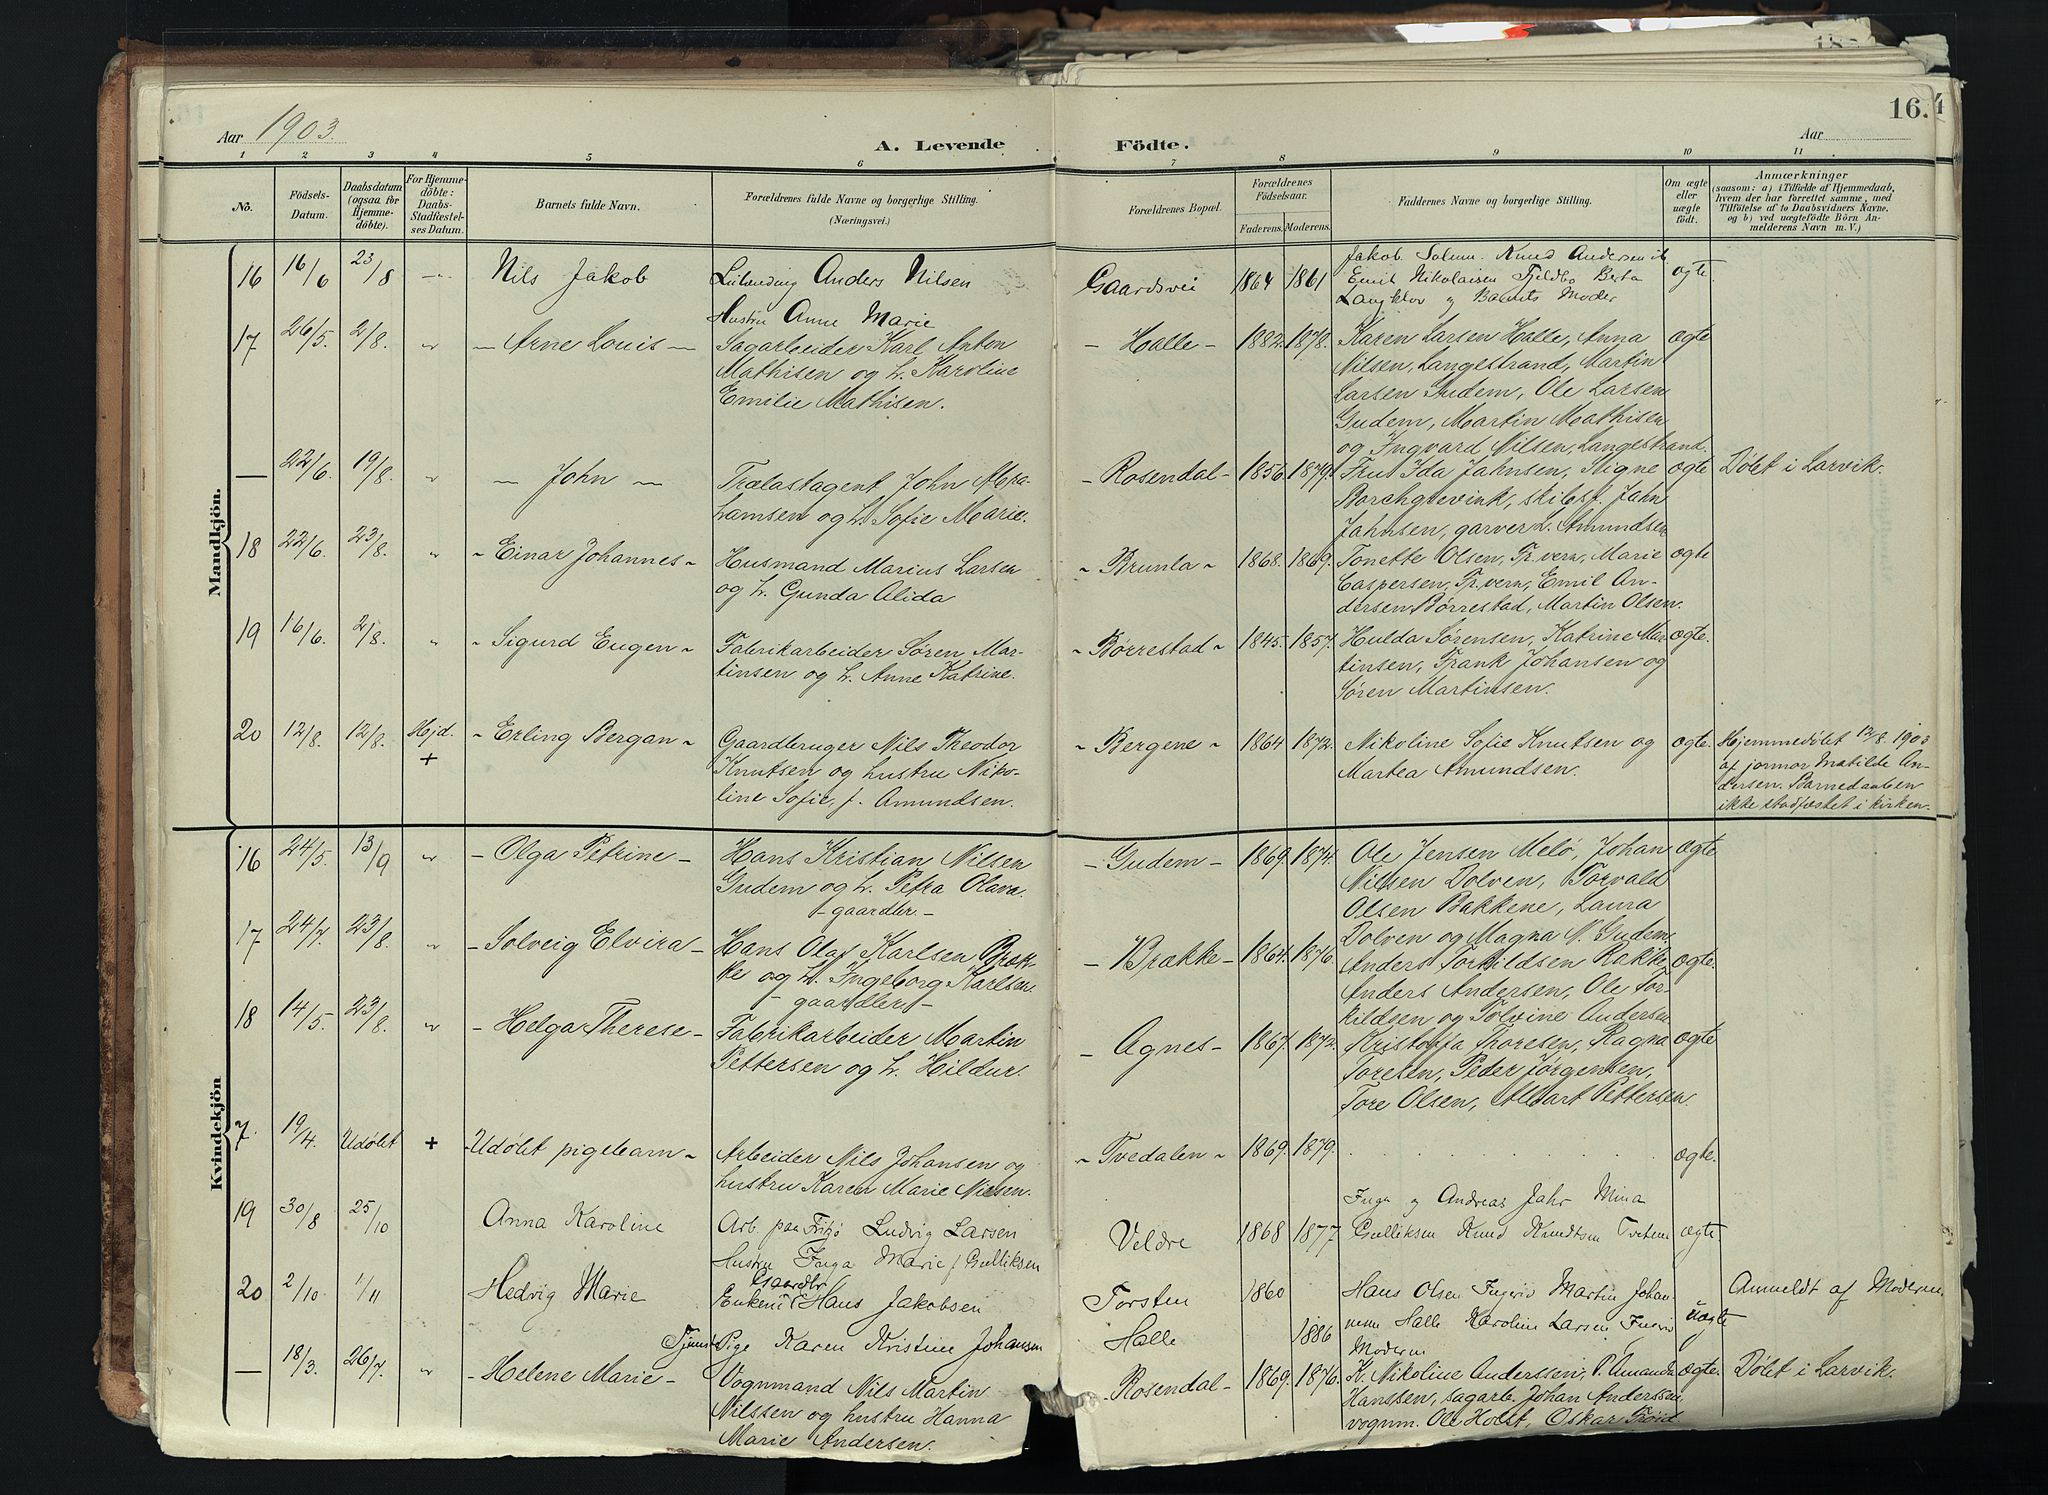 Aar 1903.
A. Levende Födte.
16.
Aar
1 2 3 4 5 6 7 8 9 10 11
No.
Födsels-
Datum.
Daabsdatum
(ogsaa for
Hjemme-
döbte).
For Hjemme-
döbte:
Daabs-
Stadfæstel-
ses Datum.
Barnets fulde Navn.
Forældrenes fulde Navne og borgerlige Stilling.
(Næringsvei.)
Forældrenes Bopæl.
Forældrenes
Födselsaar.
Faderens. Moderens.
Faddernes Navne og borgerlige Stilling.
Om ægte
eller
uægte
født.
Anmærkninger
(saasom: a) i Tilfælde af Hjemmedaab,
hvem der har forrettet samme, med
Tilføielse af to Daabsvidners Navne,
og b) ved uægtefødte Börn An-
melderens Navn m. V.)
Mandkjön.
16 16/6 23/8 Nils Jakob
Anders Nilsen
Hustru Anne Marie
Gaardsvei 1864 1861
Jakob Solum Knud Andersen
Emil Nikolaisen Fjeldbo Berta
og Barnets Moder
ægte
17 26/5. 2/8. " – Arne Louis –
Sagarbeider Karl Anton
Mathisen og h. Karoline
Emilie Mathisen.
– Halle – 1882. 1878.
Karen Larsen Halle, Anna
Nilsen, Langestrand, Martin
Larsen Gudem, Ole Larsen
Gudem, Martin Mathisen
og Ingvard Nilsen, Langestrand.
ægte
— 22/6. 19/8. " – John –
Trælastagent John Abra-
hamsen og h. Sofie Marie.
– Rosendal – 1856. 1879.
Fru Ida Jahnsen, Signe
Borchgrevink, skibsf. Jahn
Jahnsen, garver L. Amundsen
ægte Døbt i Larvik.
18 22/6. 23/8. " – Einar Johannes –
Husmand Marius Larsen
og h. Gunda Alida
– Brunla – 1868. 1869.
Tonette Olsen, Fr.vern, Marie
Caspersen, Fr.vern, Emil An-
dersen Børrestad, Martin Olsen.
ægte
19 16/6. 2/8. " – Sigurd Eugen –
Fabrikarbeider Søren Mar-
tinsen og h. Anne Katrine.
– Børrestad – 1845. 1857.
Hulda Sørensen, Katrine Mar-
tinsen, Frank Johansen og
Søren Martinsen.
ægte.
20 12/8. 12/8. Hjd. + – Erling Bergan –
Gaardbruger Nils Theodor
Knutsen og hustru Niko-
line Sofie, f. Amundsen.
– Bergene – 1864 1872.
Nikoline Sofie Knutsen og
Martea Amundsen.
ægte.
Hjemmedøbt 12/8. 1903
af jormor Matilde An-
dersen. Barnedaaben
ikke stadfæstet i kirken.
Kvindekjön
16 24/5. 13/9 " – Olga Petrine –
Hans Kristian Nilsen
Gudem og h. Petra Olava
– gaardbr. –
– Gudem – 1869. 1874.
Ole Jensen Melø, Johan
Nilsen Dolven, Torvald
Olsen Bakkene, Laura
Dolven og Magna N. Gudem.
ægte
17 24/7. 23/8. " – Solveig Elvira –
Hans Olaf Karlsen Bræk-
ke og h. Ingeborg Karlsen.
– gaardbr. –
– Brække – 1864. 1876.
Anders Torkildsen Rakke
Anders Andersen, Ole Tor-
kildsen og Tolvine Andersen
ægte.
18 14/5. 23/8. " – Helga Therese –
Fabrikarbeider Martin
Pettersen og h. Hildur.
– Agnes – 1867. 1872.
Kristoffa Thoresen, Ragna
Toresen, Peder Jørgensen,
Tore Olsen, Albart Pettersen.
ægte
7. 19/4. Udøbt + – Udøbt pigebarn –
Arbeider Nils Johansen og
hustru Karen Marie Nilsen.
– Tvedalen – 1869. 1879.
ægte.
19 30/8 25/10 Anna Karoline
Arb. paa Fritzø Ludvig Larsen
Hustru Inga Marie f Gulliksen
Veldre 1868 1877
Inga og Andreas Jahr Mina
Gulliksen Knud Knudtsen Tveten
ægte
20 2/10 1/11 Hedvig Marie
Gaardbr
Enkem. Hans Jakobsen
Pige Karen Kristine Johansen
Torsten 1860
Halle 1886
Hans Olsen Martin Johan
nesen Halle Karoline Larsen
Moderen
uægte
Anmeldt af Moderen
— 18/3. 26/7. " – Helene Marie –
Vognmand Nils Martin
Nilssen og hustru Hanna
Marie Andersen.
Rosendal – 1869. 1876.
K. Nikoline Anderssen, P. Amanda
Hanssen, sagarb. Johan Anderssen
vognm. Ole Holst, Oskar
ægte. Døbt i Larvik.